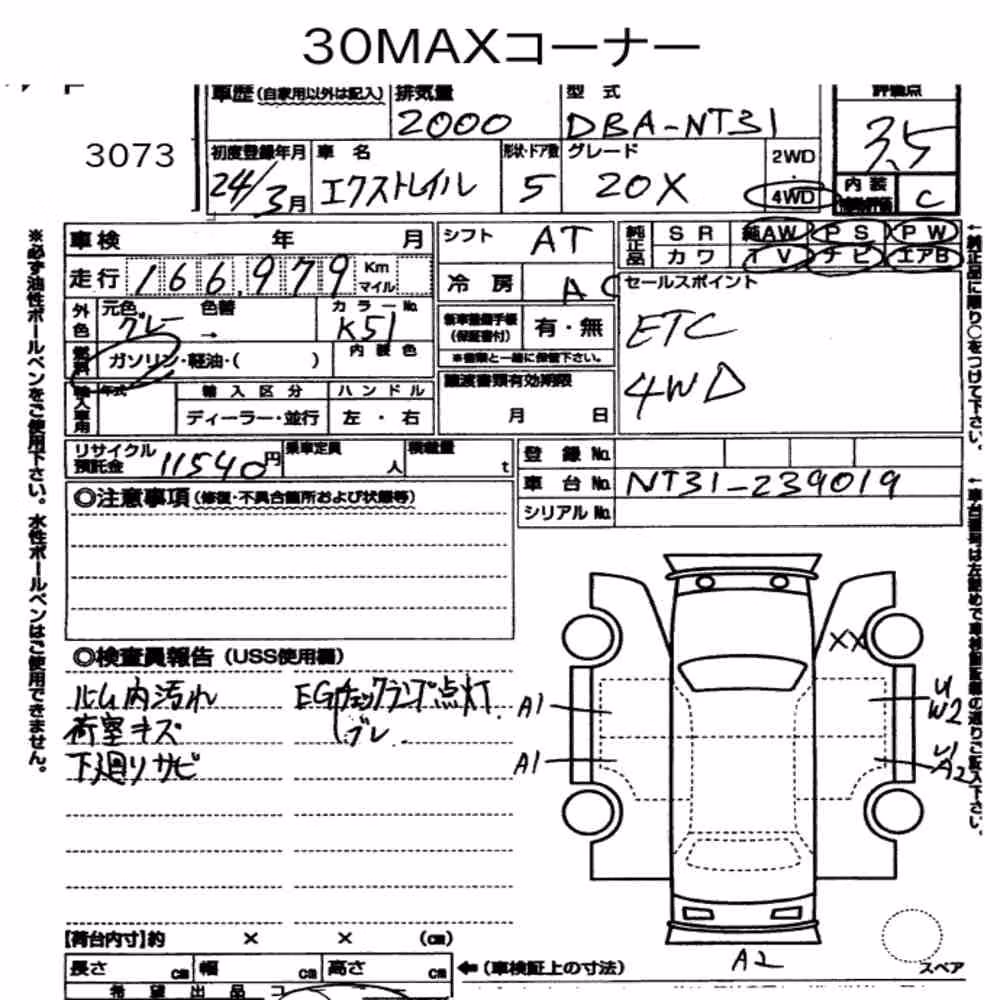 30MAXコーナー
車歴(自家用以外は記入) 排気量 型式 評価点
2000 DBA-NT31 3.5
3073
初度登録年月 車名 形状・ドア数 グレード 2WD
24/3月 エクストレイル 5 20X 4WD
内装 C
車検 年 月 シフト AT 純正品 SR 純AW PS PW
カワ TV ナビ エアB
走行 166,979 Km マイル 冷房 AC
セールスポイント
外色 元色 グレー → 色替 カラーNo. K51
新車整備手帳(保証書付) 有・無
ETC
燃料 ガソリン・軽油・( ) 内装色
※書類と一緒に保管下さい。
4WD
輸入車用 年式 輸入区分 ハンドル
ディーラー・並行 左・右
譲渡書類有効期限
月 日
リサイクル預託金 11540円 乗車定員 人 積載量 t
登録No.
車台No. NT31-239019
シリアルNo.
◎注意事項(修復・不具合箇所および状態等)
◎検査員報告(USS使用欄)
ルーム内汚れ EGチェックランプ点灯
荷室キズ ブレ
下廻りサビ
XX
A1 U W2
A1 U A2
A2
スペア
【荷台内寸】約 × × (cm)
長さ cm 幅 cm 高さ cm ←(車検証上の寸法)
希望出品コ
※必ず油性ボールペンをご使用下さい。水性ボールペンはご使用できません。
←純正品に限り○をつけて下さい。